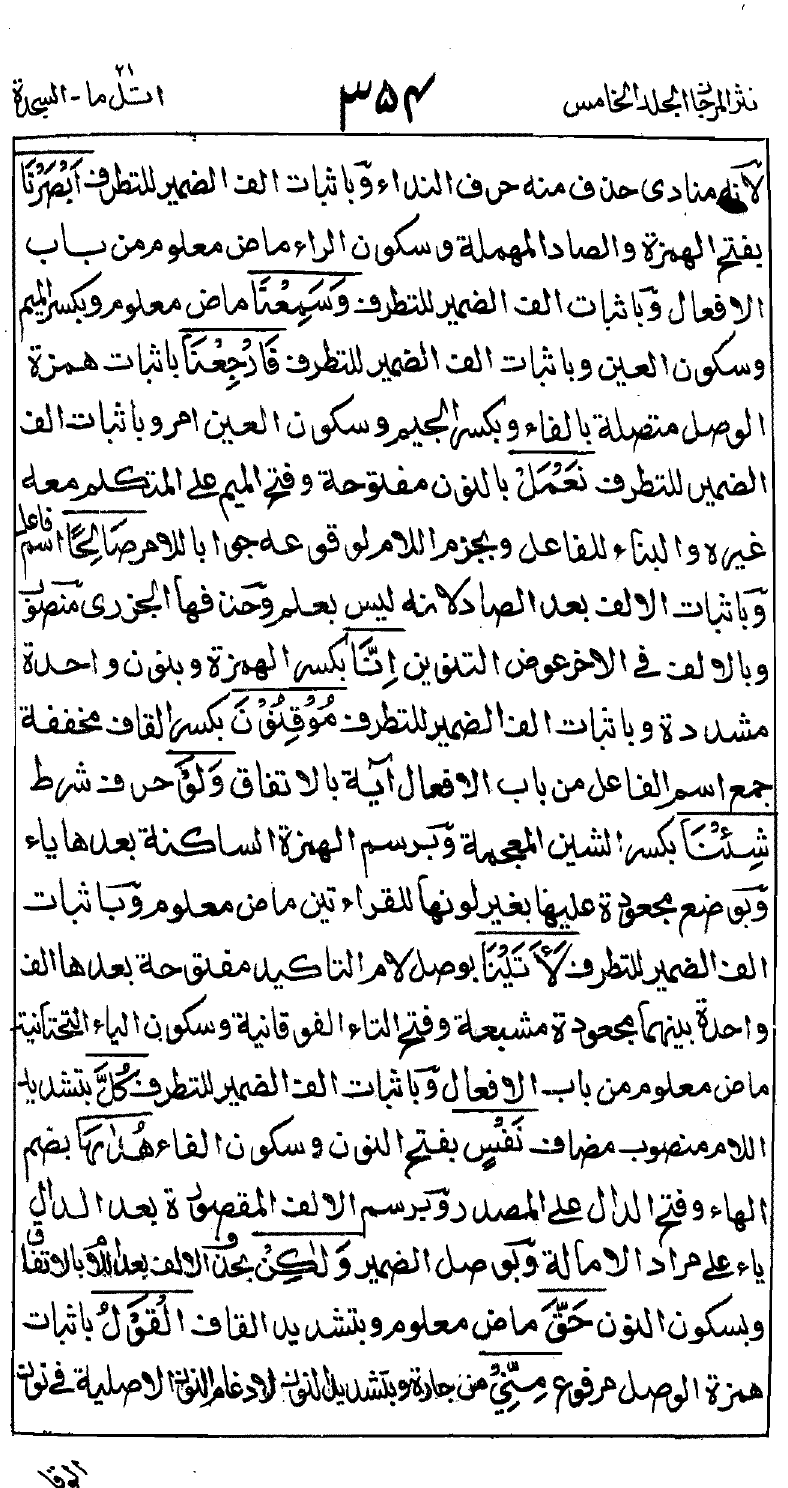 نثر المرجان المجلد الخامس ٣٥٤ اتل ما ٢١ - السجدة
لأنه منادى حذف منه حرف النداء وبا ثبات الف الضمير للتطرف أَبْصَرْنَا
بفتح الهمزة والصاد المهملة وسكون الراء ماض معلوم من باب
الافعال وباثبات الف الضمير للتطرف وَسَمِعْنَا ماض معلوم وبكسر الميم
وسكون العين وباثبات الف الضمير للتطرف فَارْجِعْنَا باثبات همزة
الوصل متصلة بالفاء وبكسر الجيم وسكون العين امر وباثبات الف
الضمير للتطرف نَعْمَلْ بالنون مفتوحة وفتح الميم على المتكلم معه
غيره والبناء للفاعل وبجزم اللام لوقوعه جوابا للامر صَالِحًا اسم فاعل
وباثبات الالف بعد الصاد لانه ليس بعلم وحذفها الجزرى منصوب
وبالالف فى الاخر عوض التنوين اِنَّا بكسر الهمزة وبنون واحدة
مشددة وباثبات الف الضمير للتطرف مُوْقِنُوْنَ بكسر القاف مخففة
جمع اسم الفاعل من باب الافعال آية بالاتفاق وَلَوْ حرف شرط
شِئْنَا بكسر الشين المعجمة وبرسم الهمزة الساكنة بعدها ياء
وبوضع مجعودة عليها بغير لونها للقراءتين ماض معلوم وباثبات
الف الضمير للتطرف لَآتَيْنَا بوصل لام التاكيد مفتوحة بعدها الف
واحدة بينهما مجعودة مشبعة وفتح التاء الفوقانية وسكون الياء التحتانية
ماض معلوم من باب الافعال وباثبات الف الضمير للتطرف كُلَّ بتشديد
اللام منصوب مضاف نَفْسٍ بفتح النون وسكون الفاء هُدٰىهَا بضم
الهاء وفتح الدال على المصدر وبرسم الالف المقصورة بعد الدال
ياء على مراد الامالة وبوصل الضمير وَلٰكِنْ بحذف الالف بعد اللام بالاتفاق
وبسكون النون حَقَّ ماض معلوم وبتشديد القاف الْقَوْلُ باثبات
همزة الوصل مرفوع مِنِّيْ من جارة وبتشديد النون لادغام النون الاصلية فى نون
الوقا